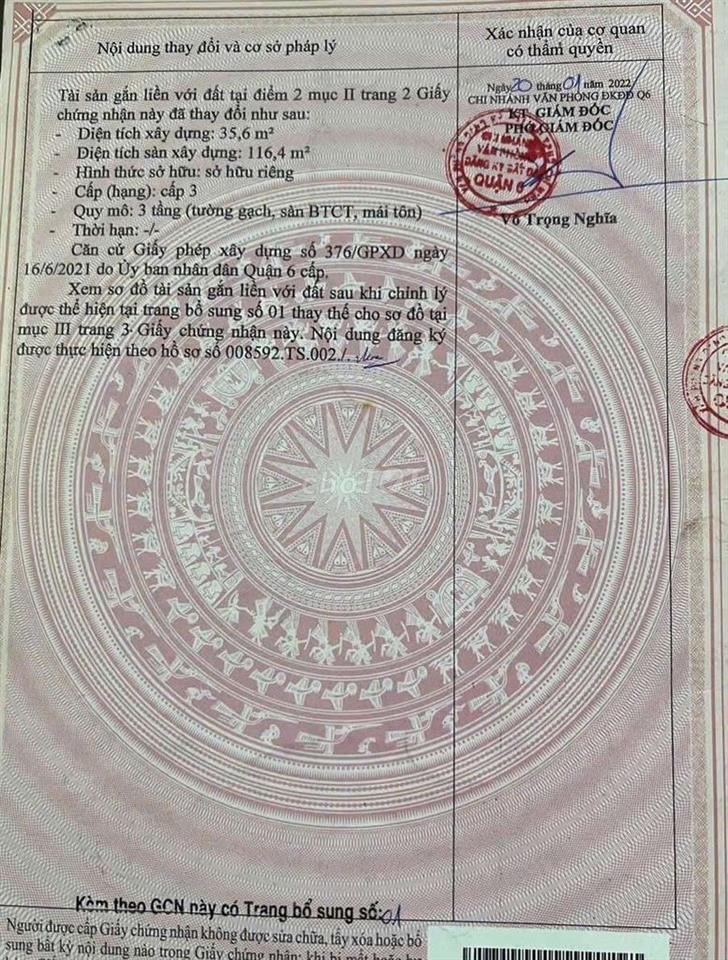 Nội dung thay đổi và cơ sở pháp lý
Xác nhận của cơ quan
có thẩm quyền
Tài sản gắn liền với đất tại điểm 2 mục II trang 2 Giấy
chứng nhận này đã thay đổi như sau:
- Diện tích xây dựng: 35,6 m²
- Diện tích sàn xây dựng: 116,4 m²
- Hình thức sở hữu: sở hữu riêng
- Cấp (hạng): cấp 3
- Quy mô: 3 tầng (tường gạch, sàn BTCT, mái tôn)
- Thời hạn: -/-
Căn cứ Giấy phép xây dựng số 376/GPXD ngày
16/6/2021 do Ủy ban nhân dân Quận 6 cấp.
Xem sơ đồ tài sản gắn liền với đất sau khi chỉnh lý
được thể hiện tại trang bổ sung số 01 thay thế cho sơ đồ tại
mục III trang 3 Giấy chứng nhận này. Nội dung đăng ký
được thực hiện theo hồ sơ số 008592.TS.002./.
Ngày 20 tháng 01 năm 2022
CHI NHÁNH VĂN PHÒNG ĐKĐĐ Q6
KT. GIÁM ĐỐC
PHÓ GIÁM ĐỐC
CHI NHÁNH
VĂN PHÒNG
ĐĂNG KÝ ĐẤT ĐAI
QUẬN 6
Võ Trọng Nghĩa
Kèm theo GCN này có Trang bổ sung số: 01
Người được cấp Giấy chứng nhận không được sửa chữa, tẩy xóa hoặc bổ
sung bất kỳ nội dung nào trong Giấy chứng nhận; khi bị mất hoặc hư